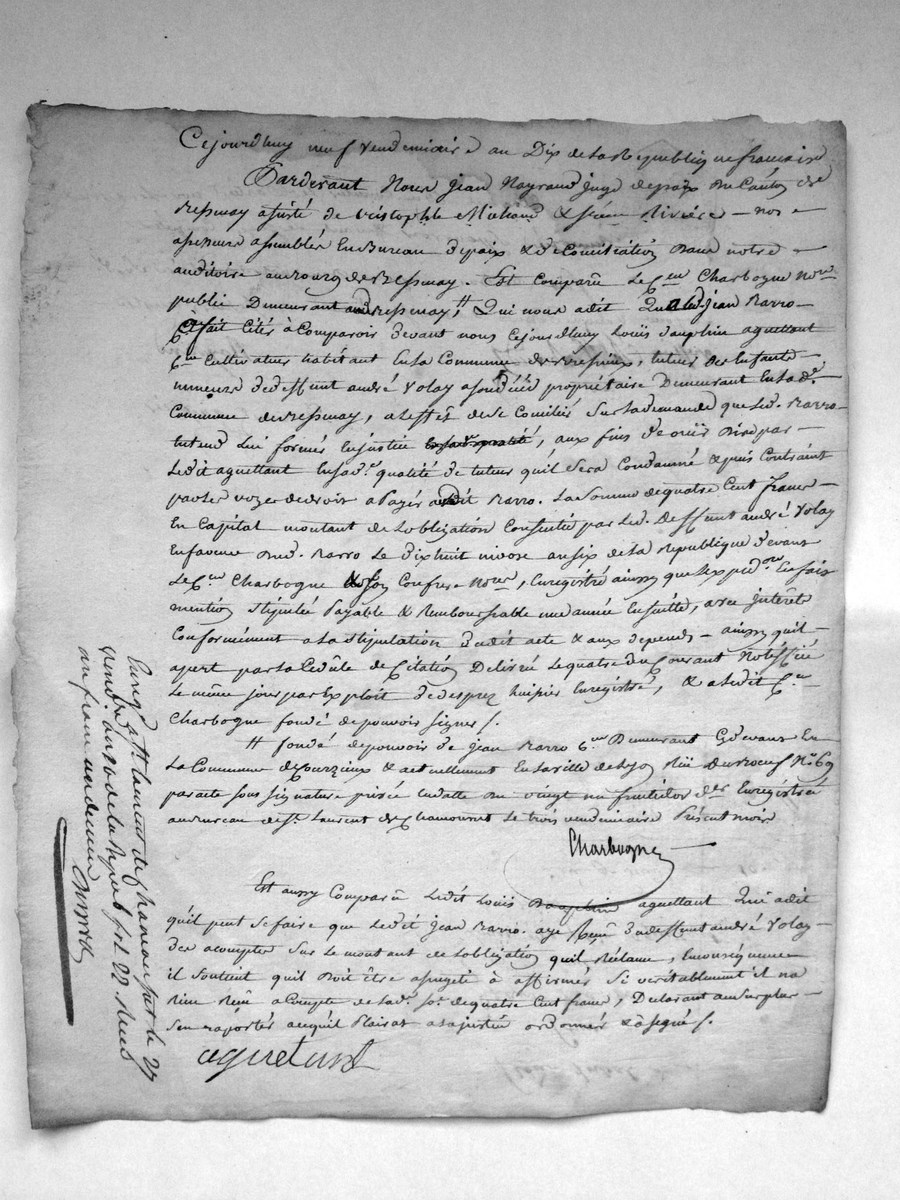 Cejourdhuy neuf vendemiaire an Dix de la republique francaise
Pardevant Nous Jean Nayrand Juge depaix Du Canton de
Bessenay assisté de Cristophle Michaud & Rivière nos
assesseurs assemblés En Bureau depaix & de Conciliation Dans notre
auditoire au bourg de Bessenay. Est Comparu Le C.en Charbogne No.re
public Demeurant aud Bessenay, # Qui nous adit Jean Barro
afait Cités à Comparoir devant nous Cejourdhuy Louis Dauphin aguettant
C.en Cultivateur habitant En La Commune de tuteur Des Enfants
mineurs de deffunt andré Volay propriétaire Demeurant En Lad.e
Commune de Bessenay, a Leffet de se Conciliés Sur La demande que Led. Barro
entend Lui formér En justice, aux fins d'ouïr Dire par
Ledit aguettant En Sad.e qualité de tuteur qu'il Sera Condamné & puis Contraint
par Les voyes de droir a Payér audit Barro. La Somme de quatre Cent francs
En Capital montant de Lobligation Consentie par Led. Deffunt andré Volay
En faveur Dud. Barro Le dix huit nivose an six de La Republique devant
Le C.en Charbogne & Son Confrere No.res, Enregistré ainsy que Lexped.on En fait
mention Stipulée Payable & Remboursable une année Ensuitte, avec Intérêts
Conformément a La Stipulation Dudit acte & aux depends ainsy quil
apert par La Cédule de Citation Delivré Le quatre du Courant Notiffiée
Le même jour par Exploit de desprez huissier Enregistré, & a Ledit C.en
Charbogne fondé de pouvoir Signés /.
# fondé depouvoir de Jean Barro C.en Demeurant Cydevant En
La Commune de Courzieux & actuellement En La ville de Lyon Rüe Du Boeuf N.o 69
par acte sous Signature privée En datte Du vingt un fructidor d.er Enregistré
au Bureau de S.t Laurent de Chamousset Le trois vendemiaire Présent mois
Charbogne
Est aussy Comparû Ledit Louis Dauphin aguettant Qui adit
quil peut Se faire que Ledit Jean Barro aye Reçu Du deffunt andré Volay
des acomptes Sur Le montant de Lobligation quil Réclame, En conséquence
il Soutient quil Doit être assujeté à affirmés Si véritablement il na
Rien Reçu à Compte de Lad.e So.e de quatre Cent francs, Declarant au Surplus
Sen raportér a cequil Plairat a La justice ordonnér & à Signé /.
aguetant
Enreg.é a S.t Laurent de Chamousset le 27
vend.re an 10 de la Repub. f.o 22 Reçu
un franc